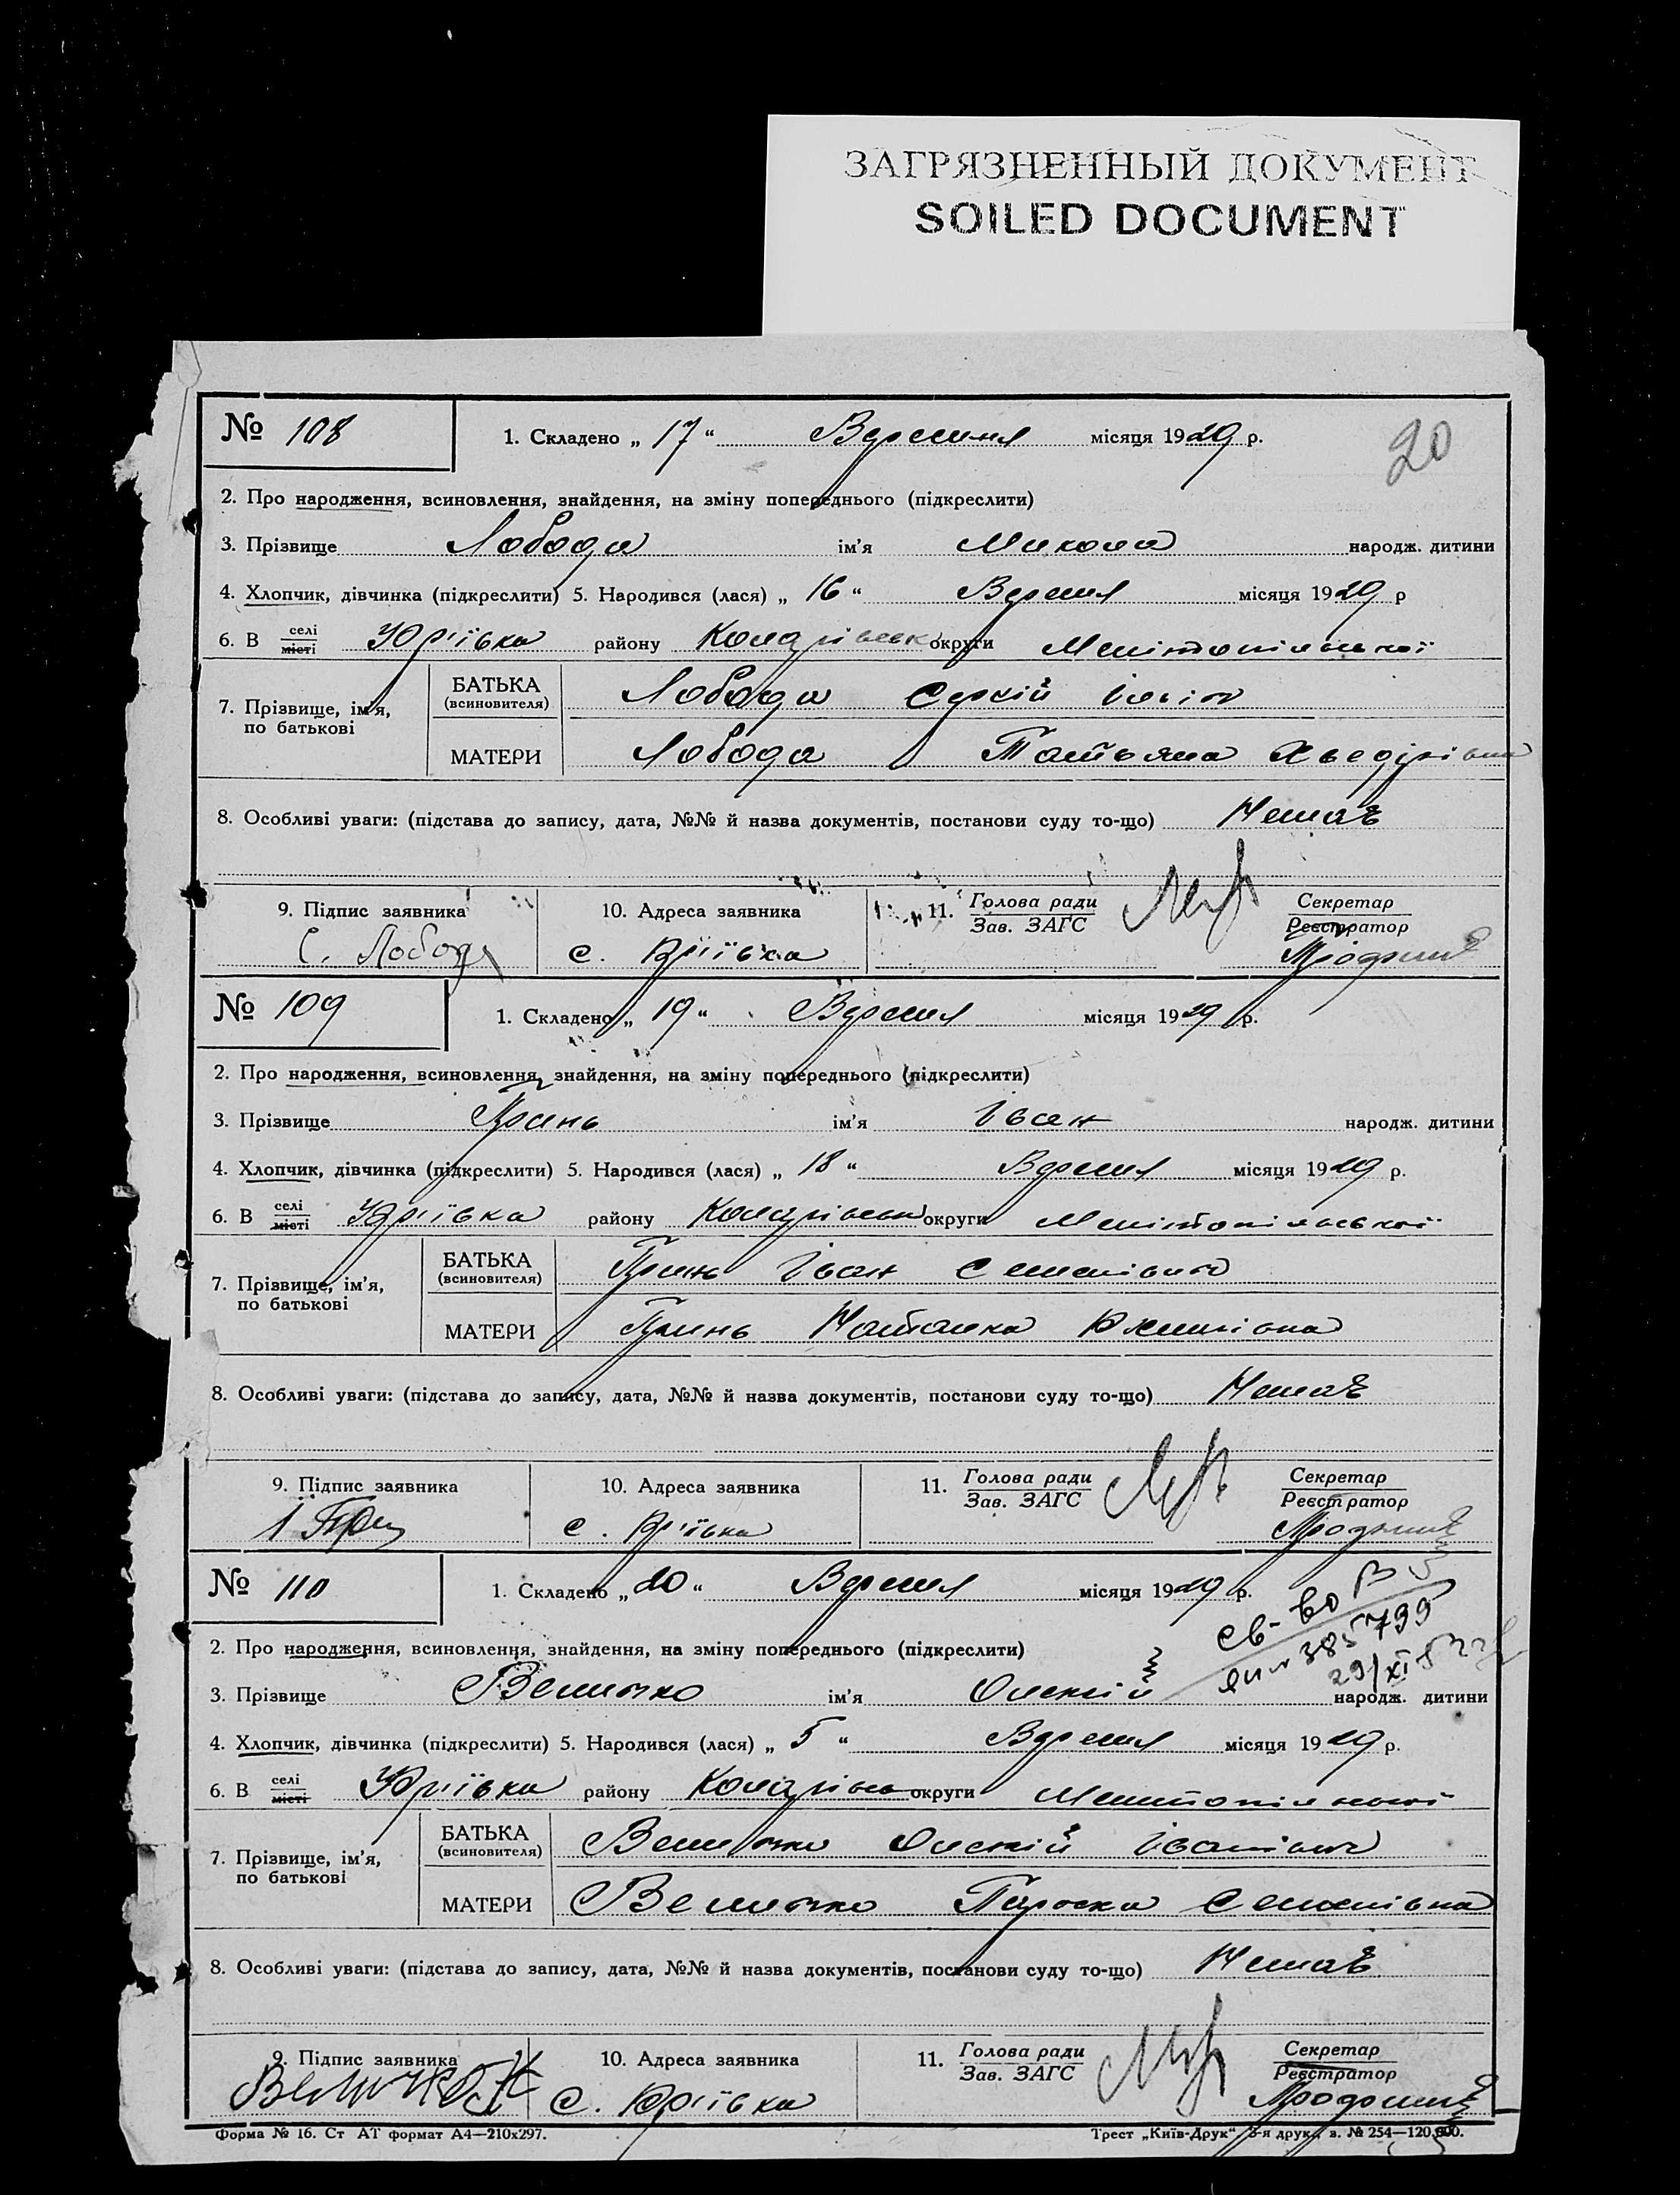 ЗАГРЯЗНЕННЫЙ ДОКУМЕНТ
SOILED DOCUMENT
20
№ 108 1. Складено „ 17 “ Вересня місяця 1929 р.
2. Про народження, всиновлення, знайдення, на зміну попереднього (підкреслити)
3. Прізвище Лобода ім'я Микола народж. дитини
4. Хлопчик, дівчинка (підкреслити) 5. Народився (лася) „ 16 “ Вересня місяця 1929 р
6. В селі місті Юр'ївка району округи Мелітопільської
7. Прізвище, ім'я, по батькові
БАТЬКА (всиновителя) Лобода Сергій
МАТЕРИ Лобода Татьяна Хведірівна
8. Особливі уваги: (підстава до запису, дата, №№ й назва документів, постанови суду то-що) Немає
9. Підпис заявника 10. Адреса заявника 11. Голова ради Зав. ЗАГС Секретар Реєстратор
С. Лобода с. Юр'ївка
№ 109 1. Складено „ 19 “ Вересня місяця 1929 р.
2. Про народження, всиновлення, знайдення, на зміну попереднього (підкреслити)
3. Прізвище Гринь ім'я Іван народж. дитини
4. Хлопчик, дівчинка (підкреслити) 5. Народився (лася) „ 18 “ Вересня місяця 1929 р.
6. В селі місті Юр'ївка району округи Мелітопільської
7. Прізвище, ім'я, по батькові
БАТЬКА (всиновителя) Гринь Іван Семенович
МАТЕРИ Гринь Наталка
8. Особливі уваги: (підстава до запису, дата, №№ й назва документів, постанови суду то-що) Немає
9. Підпис заявника 10. Адреса заявника 11. Голова ради Зав. ЗАГС Секретар Реєстратор
с. Юр'ївка
№ 110 1. Складено „ 20 “ Вересня місяця 1929 р.
св-во
385799
2. Про народження, всиновлення, знайдення, на зміну попереднього (підкреслити)
29/XI
3. Прізвище Величко ім'я Олексій народж. дитини
4. Хлопчик, дівчинка (підкреслити) 5. Народився (лася) „ 5 “ Вересня місяця 1929 р.
6. В селі місті Юр'ївка району округи Мелітопільської
7. Прізвище, ім'я, по батькові
БАТЬКА (всиновителя) Величко Олексій Іванович
МАТЕРИ Величко Параска Семенівна
8. Особливі уваги: (підстава до запису, дата, №№ й назва документів, постанови суду то-що) Немає
9. Підпис заявника 10. Адреса заявника 11. Голова ради Зав. ЗАГС Секретар Реєстратор
Величко с. Юр'ївка
Форма № 16. Ст АТ формат А4—210х297. Трест „Київ-Друк“ 3-я друк., в. № 254—120,000.